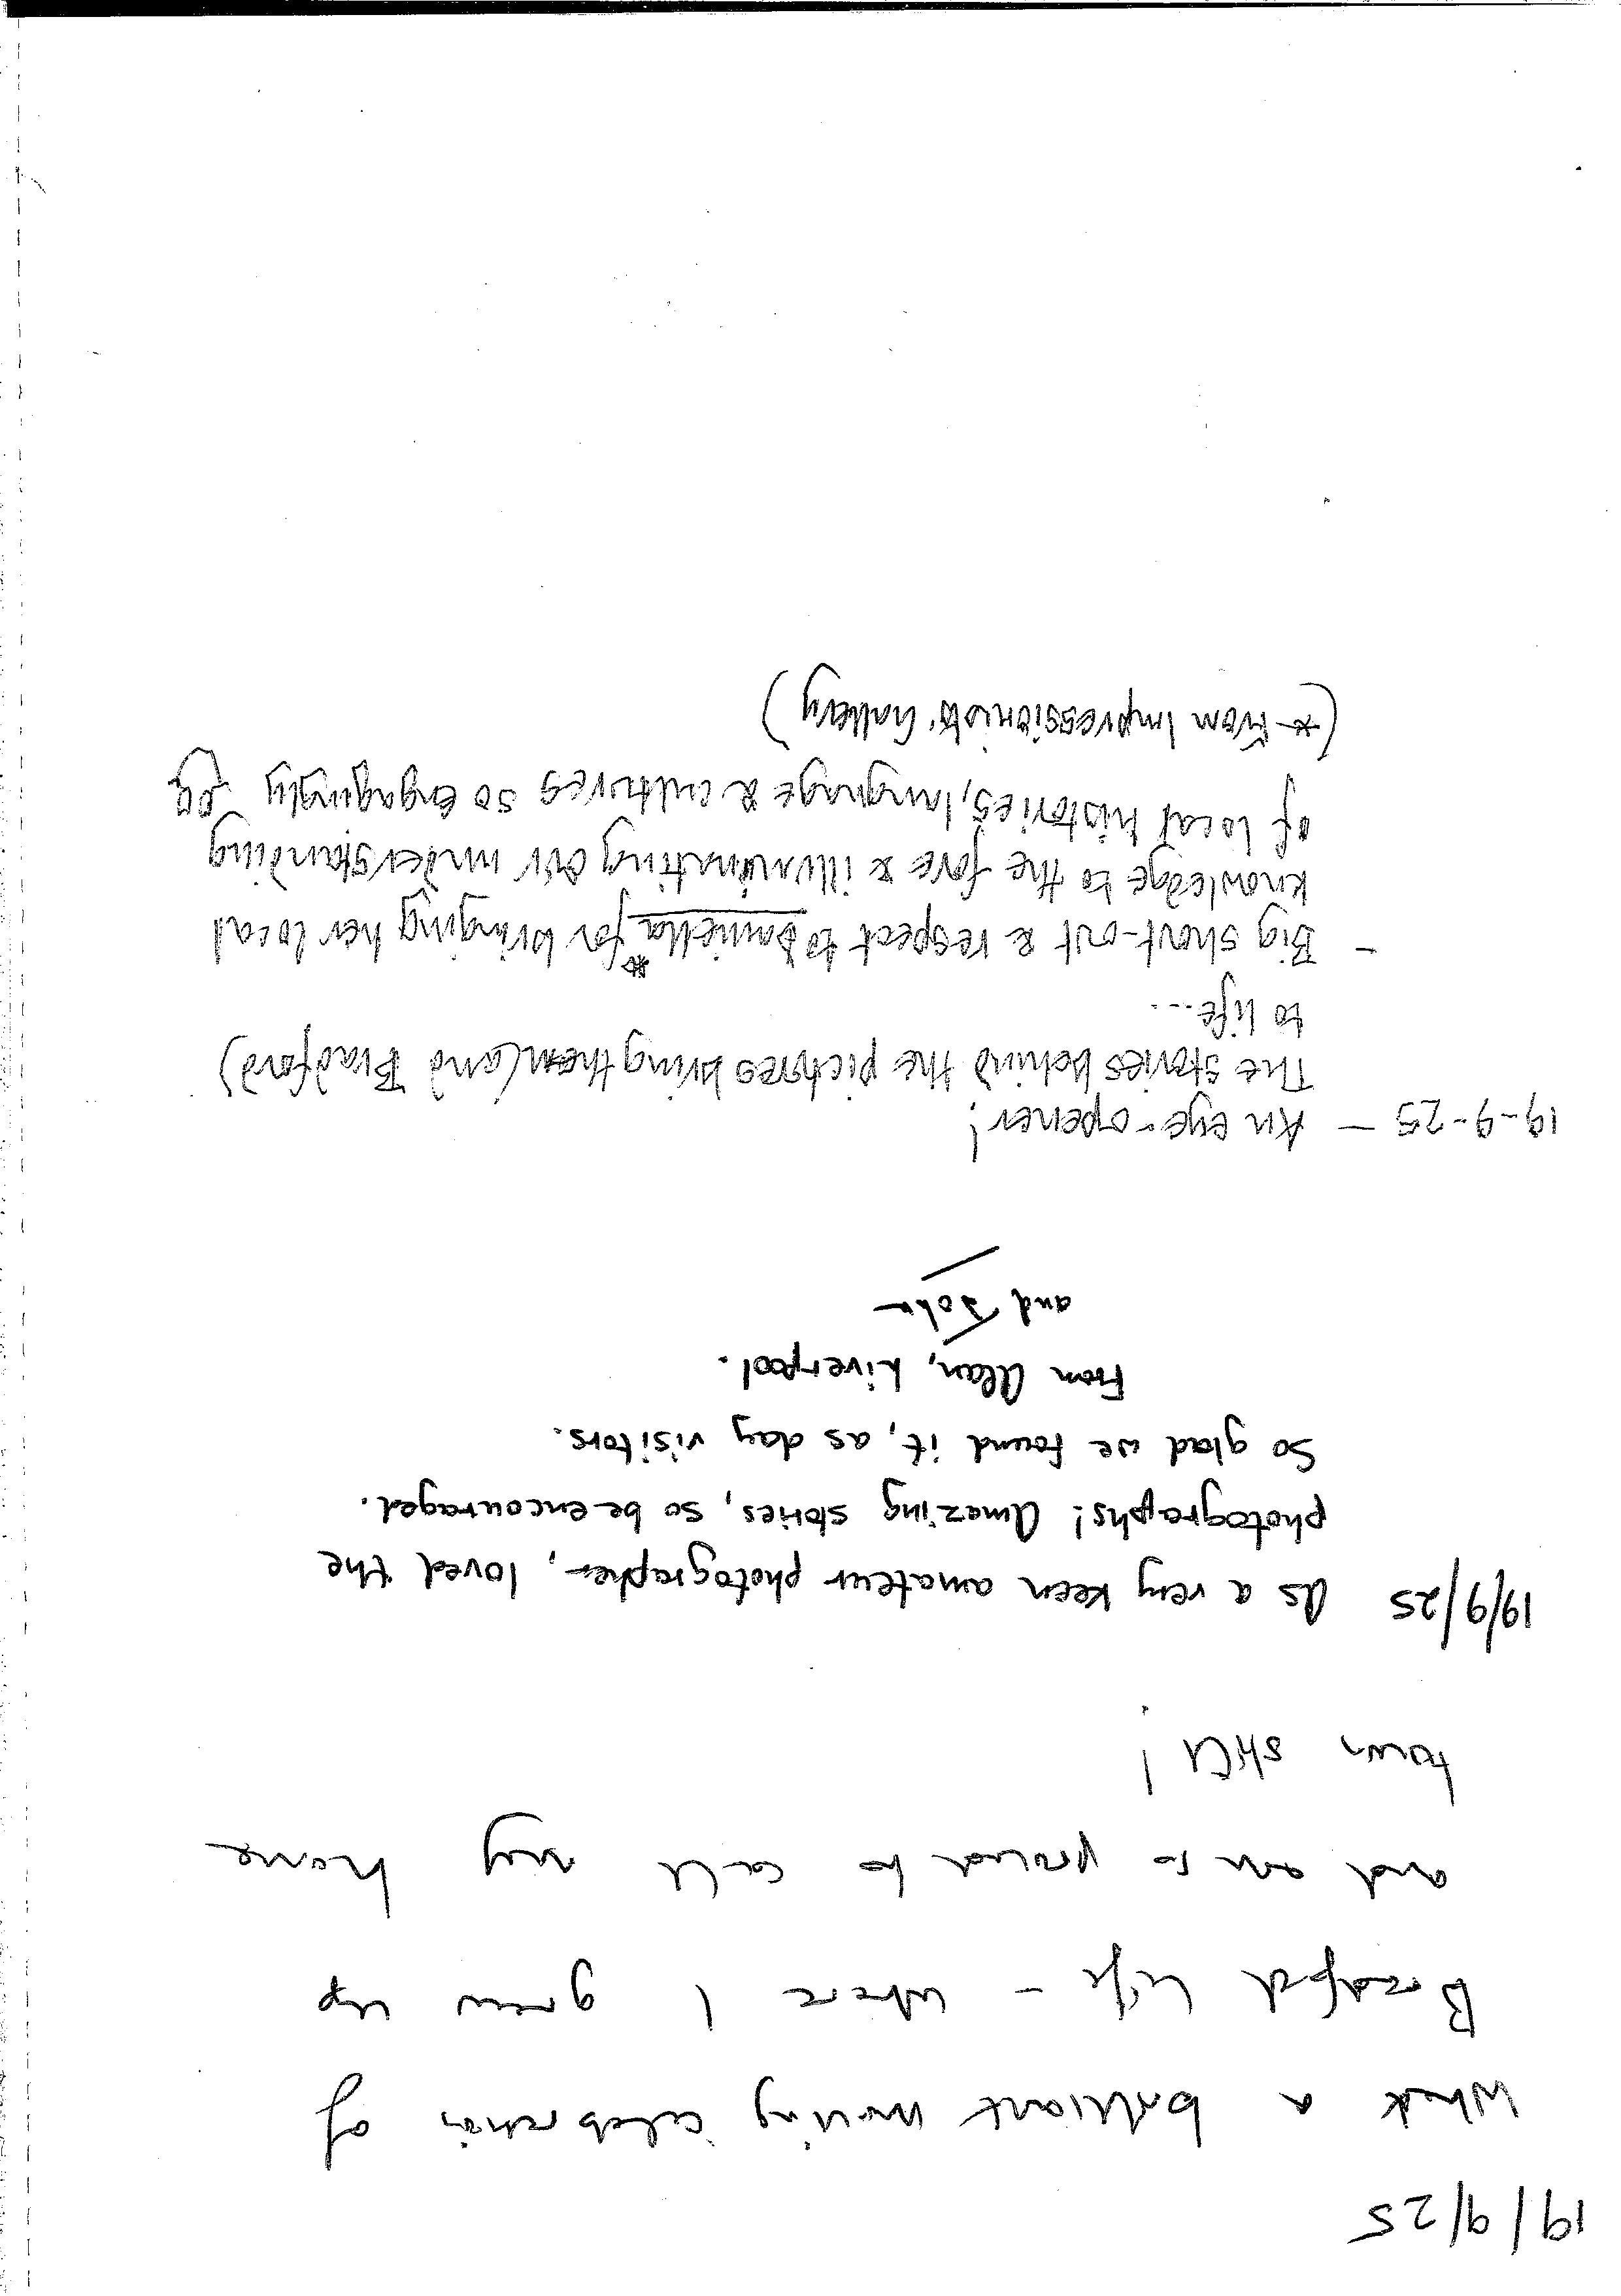 19/9/25
What a brilliant moving celebration of
Bradford life - where I grew up
and am so proud to call my home
town still!
19/9/25 As a very keen amateur photographer, loved the
photographs! Amazing stories, so be encouraged.
So glad we found it, as day visitors.
From Alan, Liverpool.
and John
19-9-25 - An eye-opener!
The stories behind the pictures bring them (and Bradford)
to life...
- Big shout-out & respect to Danniella* for bringing her local
knowledge to the fore & illuminating our understanding
of local histories, language & cultures so engagingly
(* from Impressions Gallery)